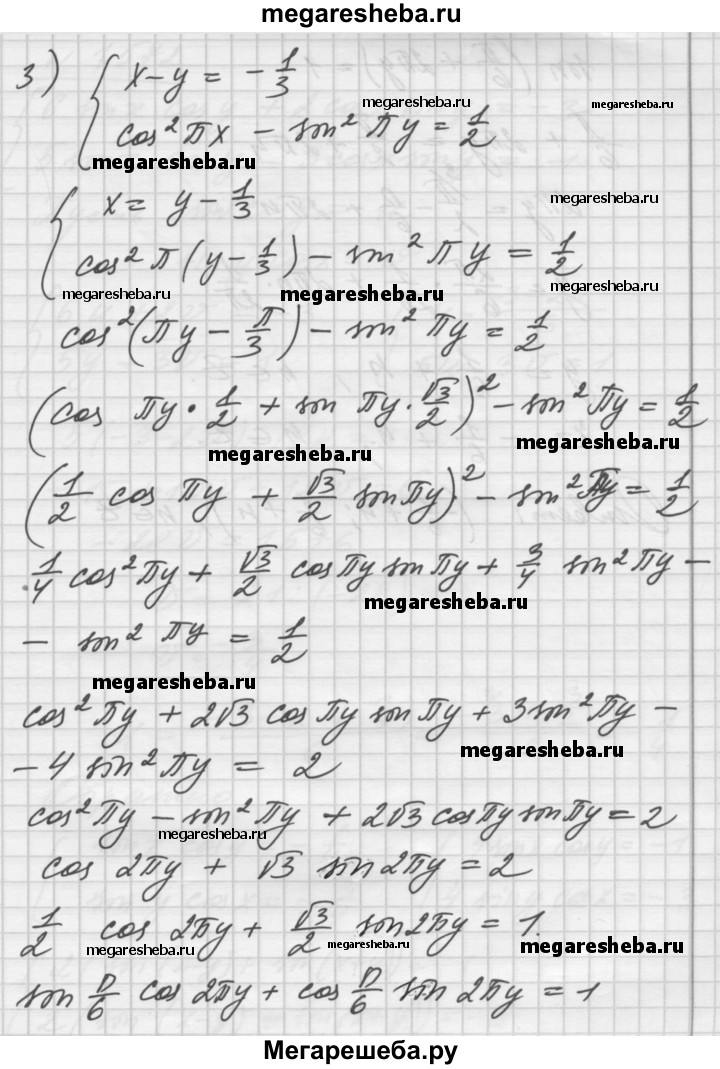 megaresheba.ru
3) { x - y = - 1/3
megaresheba.ru megaresheba.ru
cos² πx - sin² πy = 1/2
megaresheba.ru
{ x = y - 1/3
megaresheba.ru
cos² π (y - 1/3) - sin² πy = 1/2
megaresheba.ru megaresheba.ru megaresheba.ru
cos² (πy - π/3) - sin² πy = 1/2
(cos πy · 1/2 + sin πy · √3/2)² - sin² πy = 1/2
megaresheba.ru megaresheba.ru
(1/2 cos πy + √3/2 sin πy)² - sin² πy = 1/2
1/4 cos² πy + √3/2 cos πy sin πy + 3/4 sin² πy -
megaresheba.ru
- sin² πy = 1/2
megaresheba.ru
cos² πy + 2√3 cos πy sin πy + 3 sin² πy -
megaresheba.ru
- 4 sin² πy = 2
cos² πy - sin² πy + 2√3 cos πy sin πy = 2
megaresheba.ru
cos 2πy + √3 sin 2πy = 2
1/2 cos 2πy + √3/2 sin 2πy = 1.
megaresheba.ru megaresheba.ru megaresheba.ru
sin π/6 cos 2πy + cos π/6 sin 2πy = 1
Мегарешеба.ру